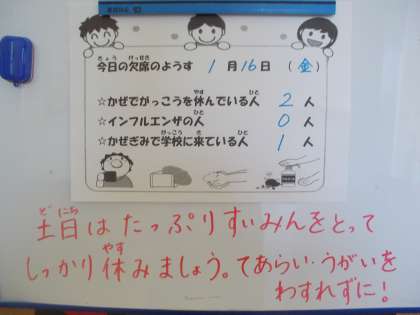 今日の欠席のようす 1月16日（金）
☆かぜでがっこうを休んでいる人 2人
☆インフルエンザの人 0人
☆かぜぎみで学校に来ている人 1人
土日はたっぷりすいみんをとって
しっかり休みましょう。てあらい・うがいを
わすれずに！